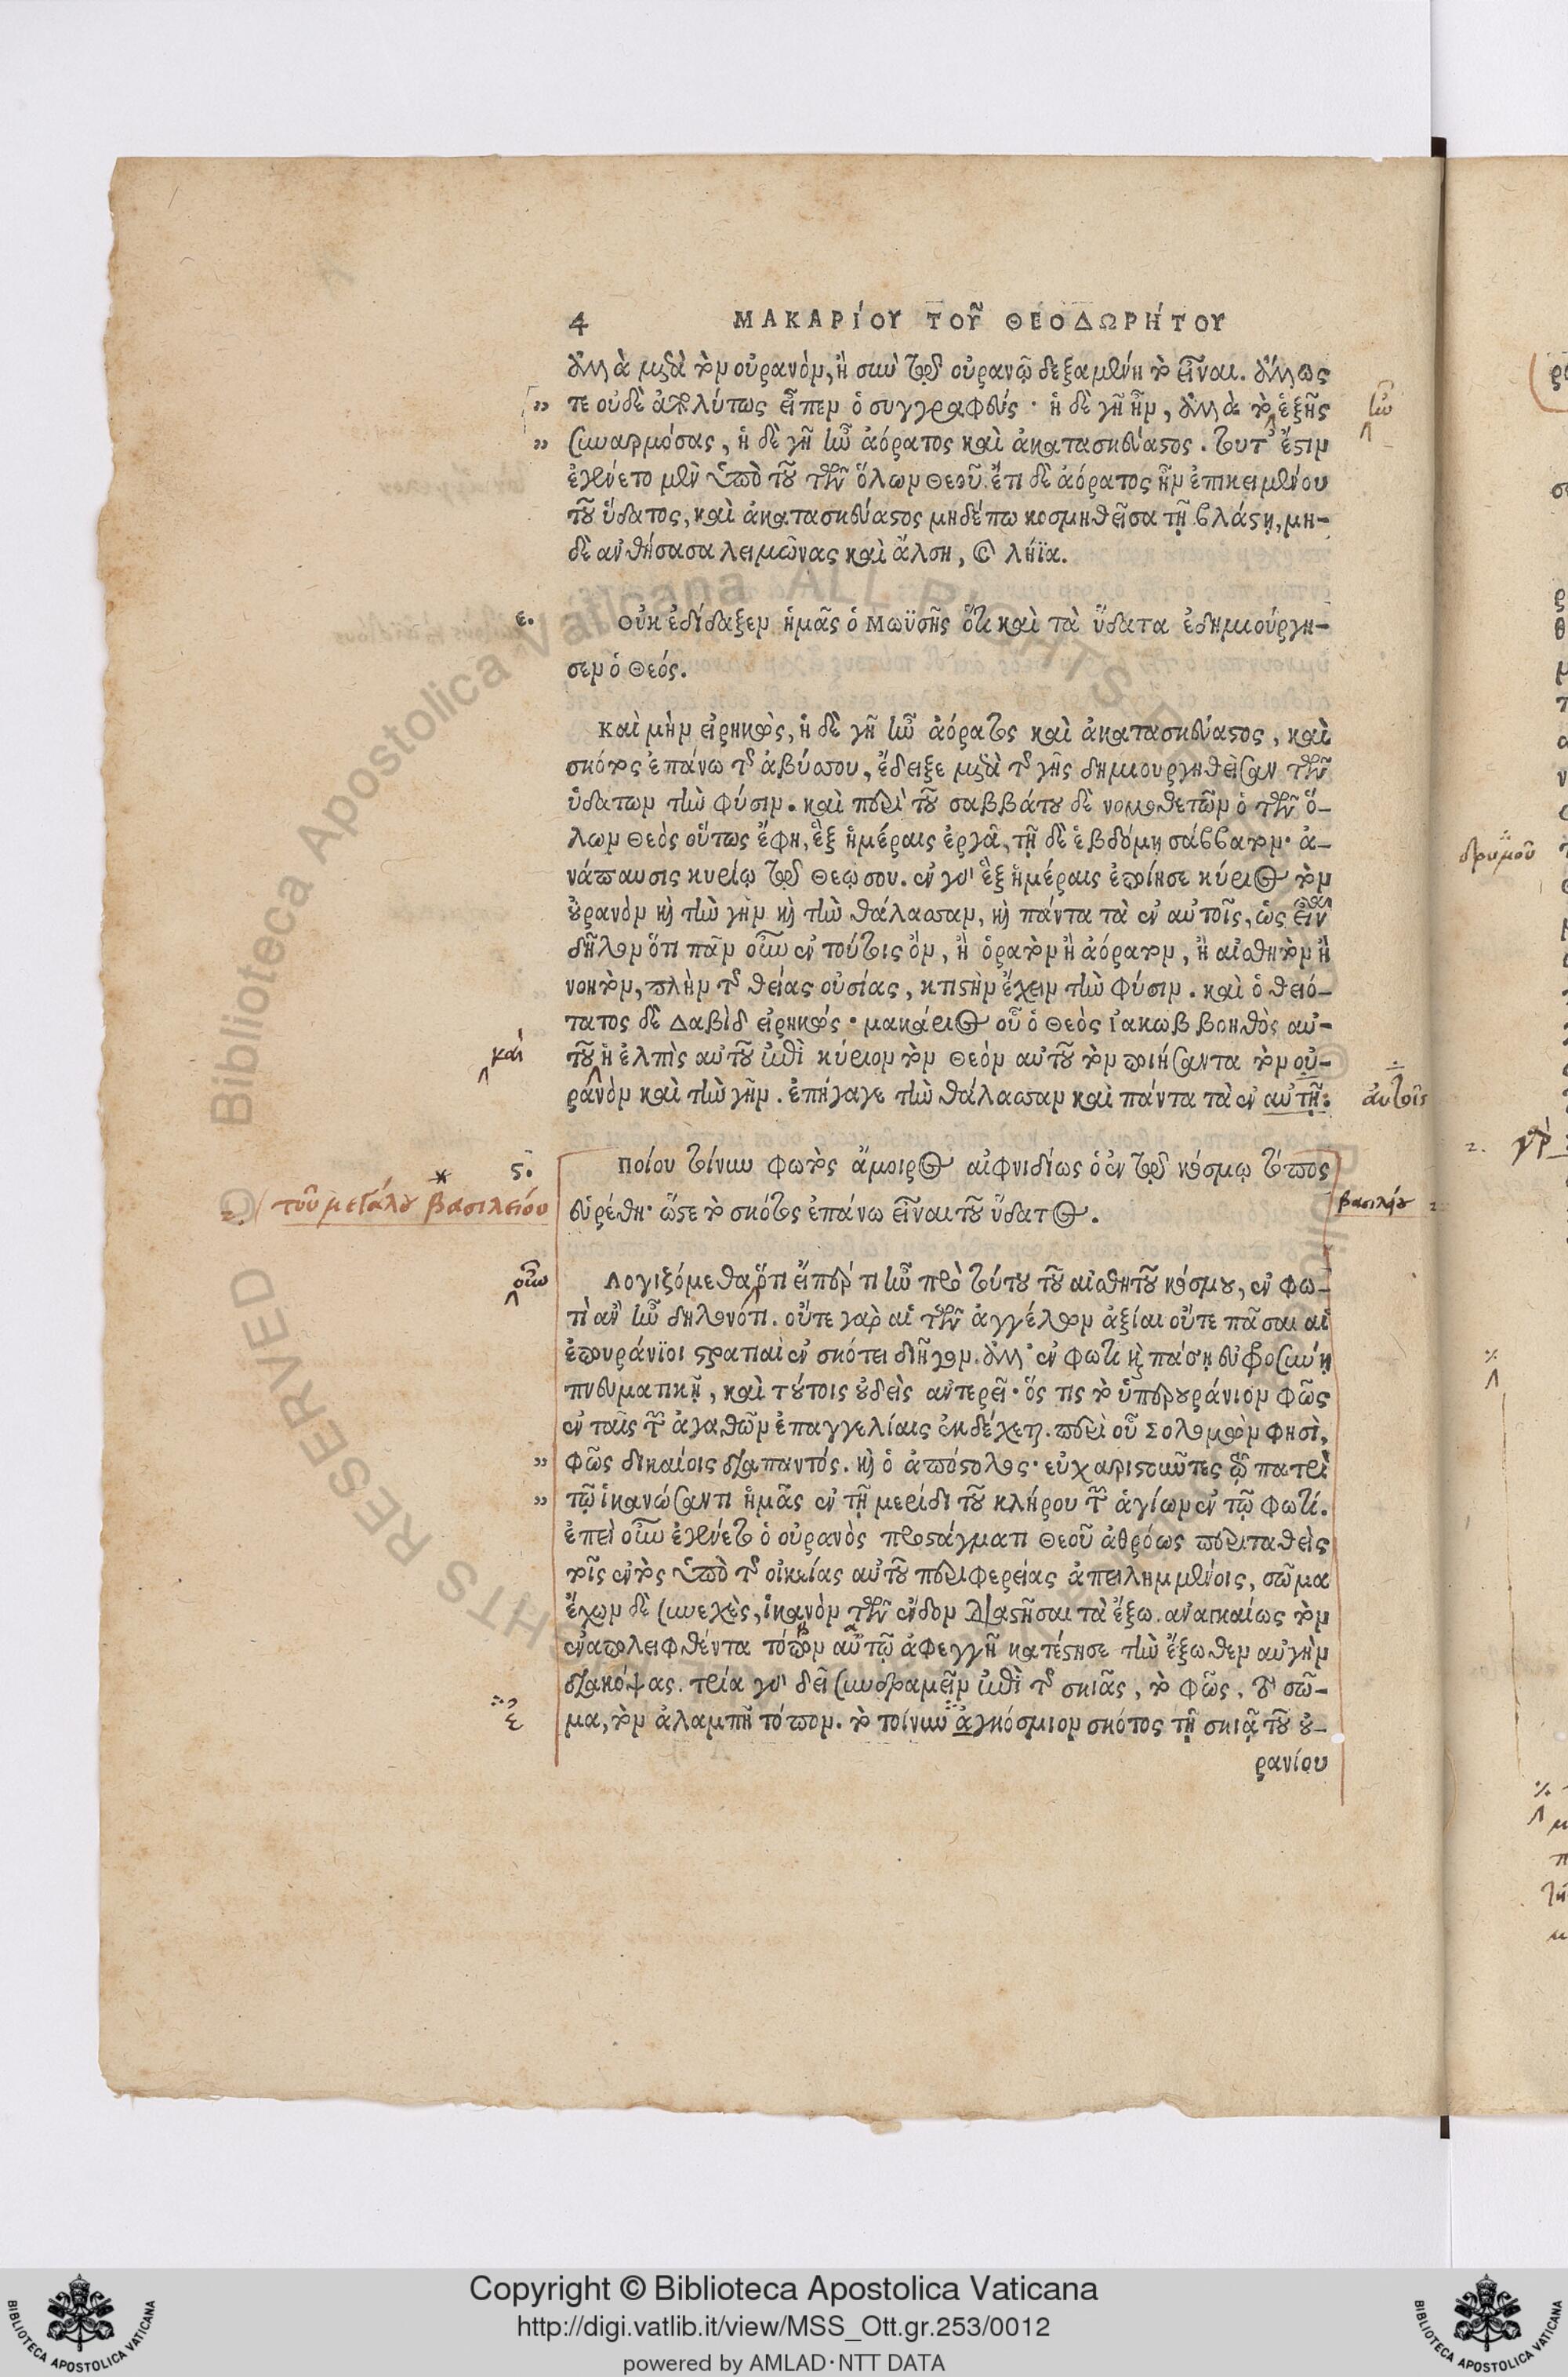 4 ΜΑΚΑΡΊΟΥ ΤΟΥ͂ ΘΕΟΔΩΡΉΤΟΥ
ἀλλὰ μετὰ τὸν οὐρανὸν, ἢ σὺν τῷ οὐρανῷ δεξαμένη τὸ εἶναι. ἄλλως
„ τε οὐδὲ ἀπολύτως εἶπεν ὁ συγγραφεύς· ἡ δὲ γῆ ἦν, ἀλλὰ τὸ ἑξῆς ἦν
„ συναρμόσας, ἡ δὲ γῆ ἦν ἀόρατος καὶ ἀκατασκεύαστος. τουτ' ἔστιν
ἐγένετο μὲν ὑπὸ τοῦ τῶν ὅλων Θεοῦ. ἔτι δὲ ἀόρατος ἦν ἐπικειμένου
τοῦ ὕδατος, καὶ ἀκατασκεύαστος μηδέπω κοσμηθεῖσα τῇ βλάστῃ, μη-
δὲ ἀνθήσασα λειμῶνας καὶ ἄλση, καὶ λήϊα.
ε. Οὐκ ἐδίδαξεν ἡμᾶς ὁ Μωϋσῆς ὅτι καὶ τὰ ὕδατα ἐδημιούργη-
σεν ὁ Θεός.
Καὶ μὴν εἰρηκὼς, ἡ δὲ γῆ ἦν ἀόρατος καὶ ἀκατασκεύαστος, καὶ
σκότος ἐπάνω τῆς ἀβύσσου, ἔδειξε μετὰ τῆς γῆς δημιουργηθεῖσαν τῶν
ὑδάτων τὴν φύσιν. καὶ περὶ τοῦ σαββάτου δὲ νομοθετῶν ὁ τῶν ὅ-
λων Θεὸς οὕτως ἔφη, ἓξ ἡμέραις ἐργᾷ, τῇ δὲ ἑβδόμῃ σάββατον· ἀ-
νάπαυσις κυρίῳ τῷ Θεῷ σου. ἐν γὰρ ἓξ ἡμέραις ἐποίησε κύριος τὸν
οὐρανὸν καὶ τὴν γῆν καὶ τὴν θάλασσαν, καὶ πάντα τὰ ἐν αὐτοῖς, ὡς εἶναι
δῆλον ὅτι πᾶν οὖν ἐν τούτοις ὂν, ἢ ὁρατὸν ἢ ἀόρατον, ἢ αἰσθητὸν ἢ
νοητὸν, πλὴν τῆς θείας οὐσίας, κτιστὴν ἔχειν τὴν φύσιν. καὶ ὁ θειό-
τατος δὲ Δαβὶδ εἰρηκώς· μακάριος οὗ ὁ Θεὸς Ἰακωβ βοηθὸς αὐ-
καὶ τοῦ ἡ ἐλπὶς αὐτοῦ ἐπὶ κύριον τὸν Θεὸν αὐτοῦ τὸν ποιήσαντα τὸν οὐ-
ρανὸν καὶ τὴν γῆν. ἐπήγαγε τὴν θάλασσαν καὶ πάντα τὰ ἐν αὐτῇ: ἀυτοῖς
ς. Ποίου τοίνυν φωτὸς ἄμοιρος αἰφνιδίως ὁ ἐν τῷ κόσμῳ τόπος
τοῦ μεγάλου βασιλείου εὑρέθη· ὥστε τὸ σκότος ἐπάνω εἶναι τοῦ ὕδατος. βασιλείου
οὖν Λογιζόμεθα ὅτι εἴπερ τι ἦν πρὸ τούτου τοῦ αἰσθητοῦ κόσμου, ἐν φω-
τὶ ἂν ἦν δηλονότι. οὔτε γὰρ αἱ τῶν ἀγγέλων ἀξίαι οὔτε πᾶσαι αἱ
ἐπουράνϊοι στρατιαὶ ἐν σκότει διῆγον. ἀλλ' ἐν φωτὶ καὶ πάσῃ εὐφροσύνῃ
πνευματικῇ, καὶ τούτοις οὐδεὶς ἀντερεῖ· ὅς τις τὸ ὑπερουράνιον φῶς
ἐν ταῖς τῶν ἀγαθῶν ἐπαγγελίαις ἐκδέχεται. περὶ οὗ Σολομὼν φησὶ,
„ φῶς δικαίοις διαπαντός. καὶ ὁ ἀπόστολος· εὐχαριστοῦντες τῷ πατρὶ
„ τῷ ἱκανώσαντι ἡμᾶς ἐν τῇ μερίδι τοῦ κλήρου τῶν ἁγίων ἐν τῷ φωτί.
ἐπεὶ οὖν ἐγένετο ὁ οὐρανὸς προστάγματι Θεοῦ ἀθρόως περιταθεὶς
τοῖς ἐντὸς ὑπὸ τῆς οἰκείας αὐτοῦ περιφερείας ἀπειλημμένοις, σῶμα
ἔχων δὲ συνεχὲς, ἱκανὸν τῶν ἔνδον διαστῆσαι τὰ ἔξω. ἀναγκαίως τὸν
ἐναπολειφθέντα τόπον αὐτῷ ἀφεγγῆ κατέστησε τὴν ἔξωθεν αὐγὴν
διακόψας. τρία γὰρ δεῖ συνδραμεῖν ἐπὶ τῆς σκιᾶς, τὸ φῶς, τὸ σῶ-
μα, τὸν ἀλαμπῆ τόπον. τὸ τοίνυν ἀγκόσμιον σκότος τῇ σκιᾷ τοῦ οὐ-
ρανίου
δρυμοῦ
Copyright © Biblioteca Apostolica Vaticana
http://digi.vatlib.it/view/MSS_Ott.gr.253/0012
powered by AMLAD·NTT DATA
BIBLIOTECA APOSTOLICA VATICANA
BIBLIOTECA APOSTOLICA VATICANA
© Biblioteca Apostolica Vaticana ALL RIGHTS RESERVED